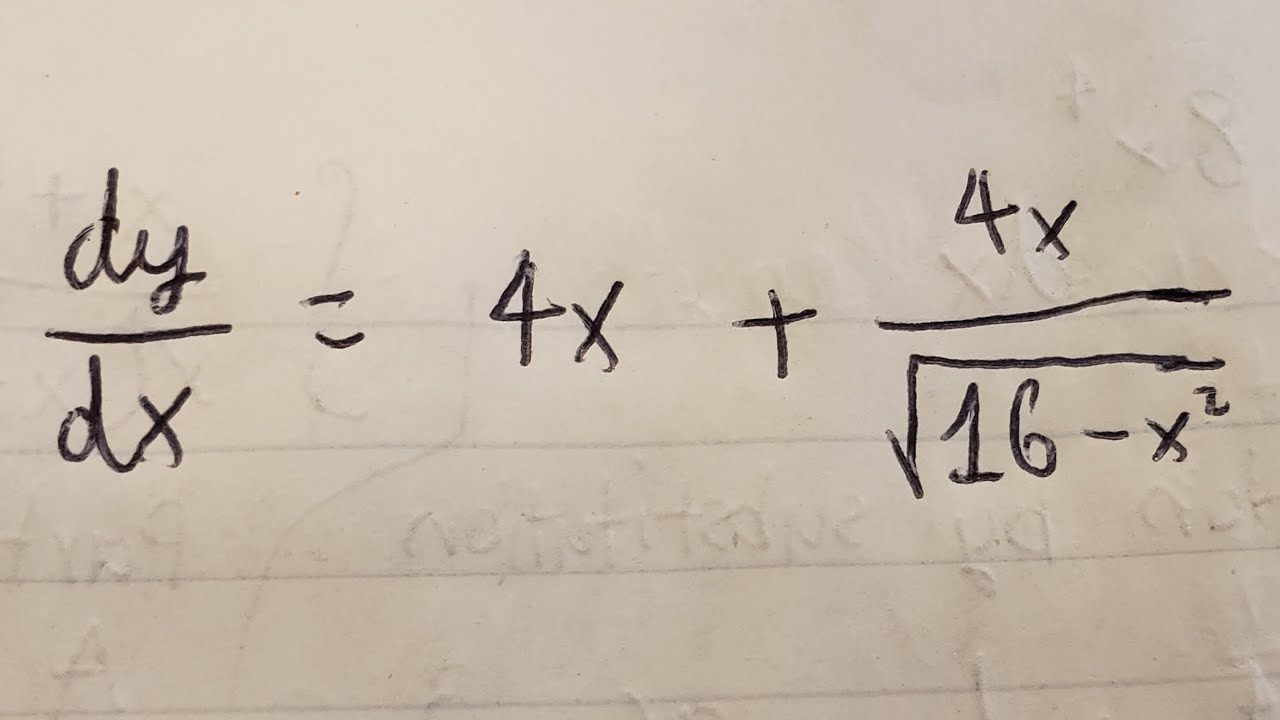 dy/dx = 4x + 4x/√(16-x²)